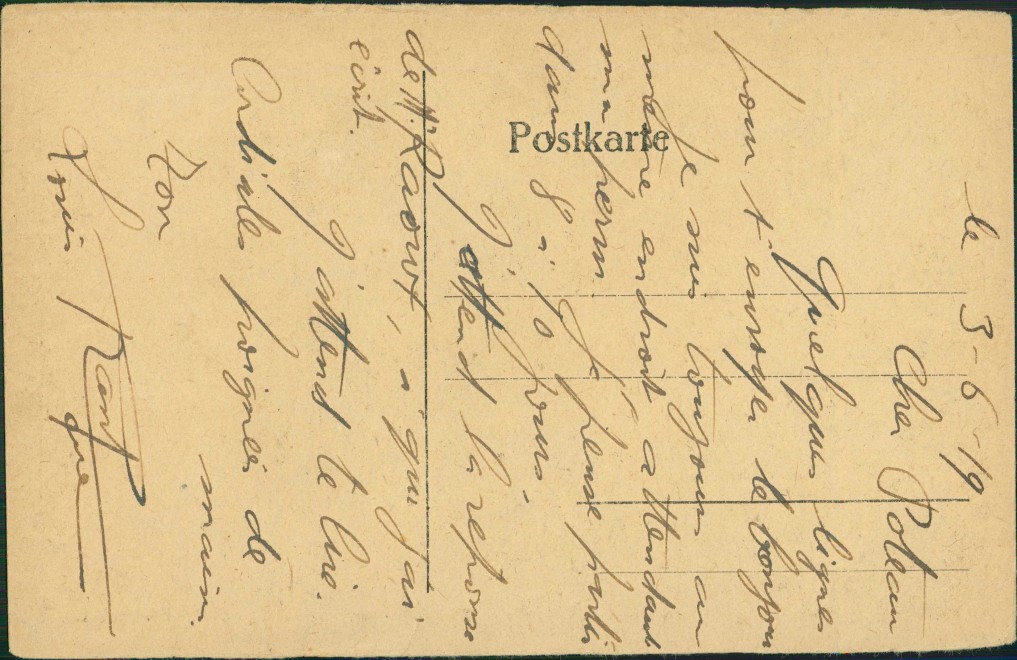 Postkarte
le 3-6-19
Cher Poteau
Quelques lignes
pour t'envoyer le bonjour
Je suis toujours au
même endroit attendant
ma perm. Je pense partir
dans 8 à 10 jours.
J'attend la reponse
de Mr. Raout, à qui j'ai
écrit.
J'attend te lire.
Cordiales poignées de
main.
Ton
Louis